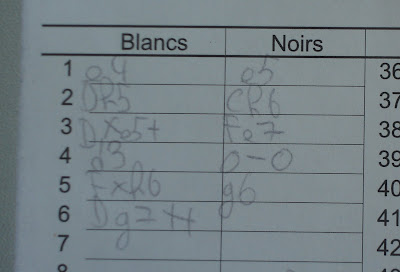 Blancs Noirs
1 e4 e5 36
2 Dh5 Ch6 37
3 Dxe5+ Fe7 38
4 d3 0-0 39
5 Fxh6 g6 40
6 Dg7++ 41
7 42
8